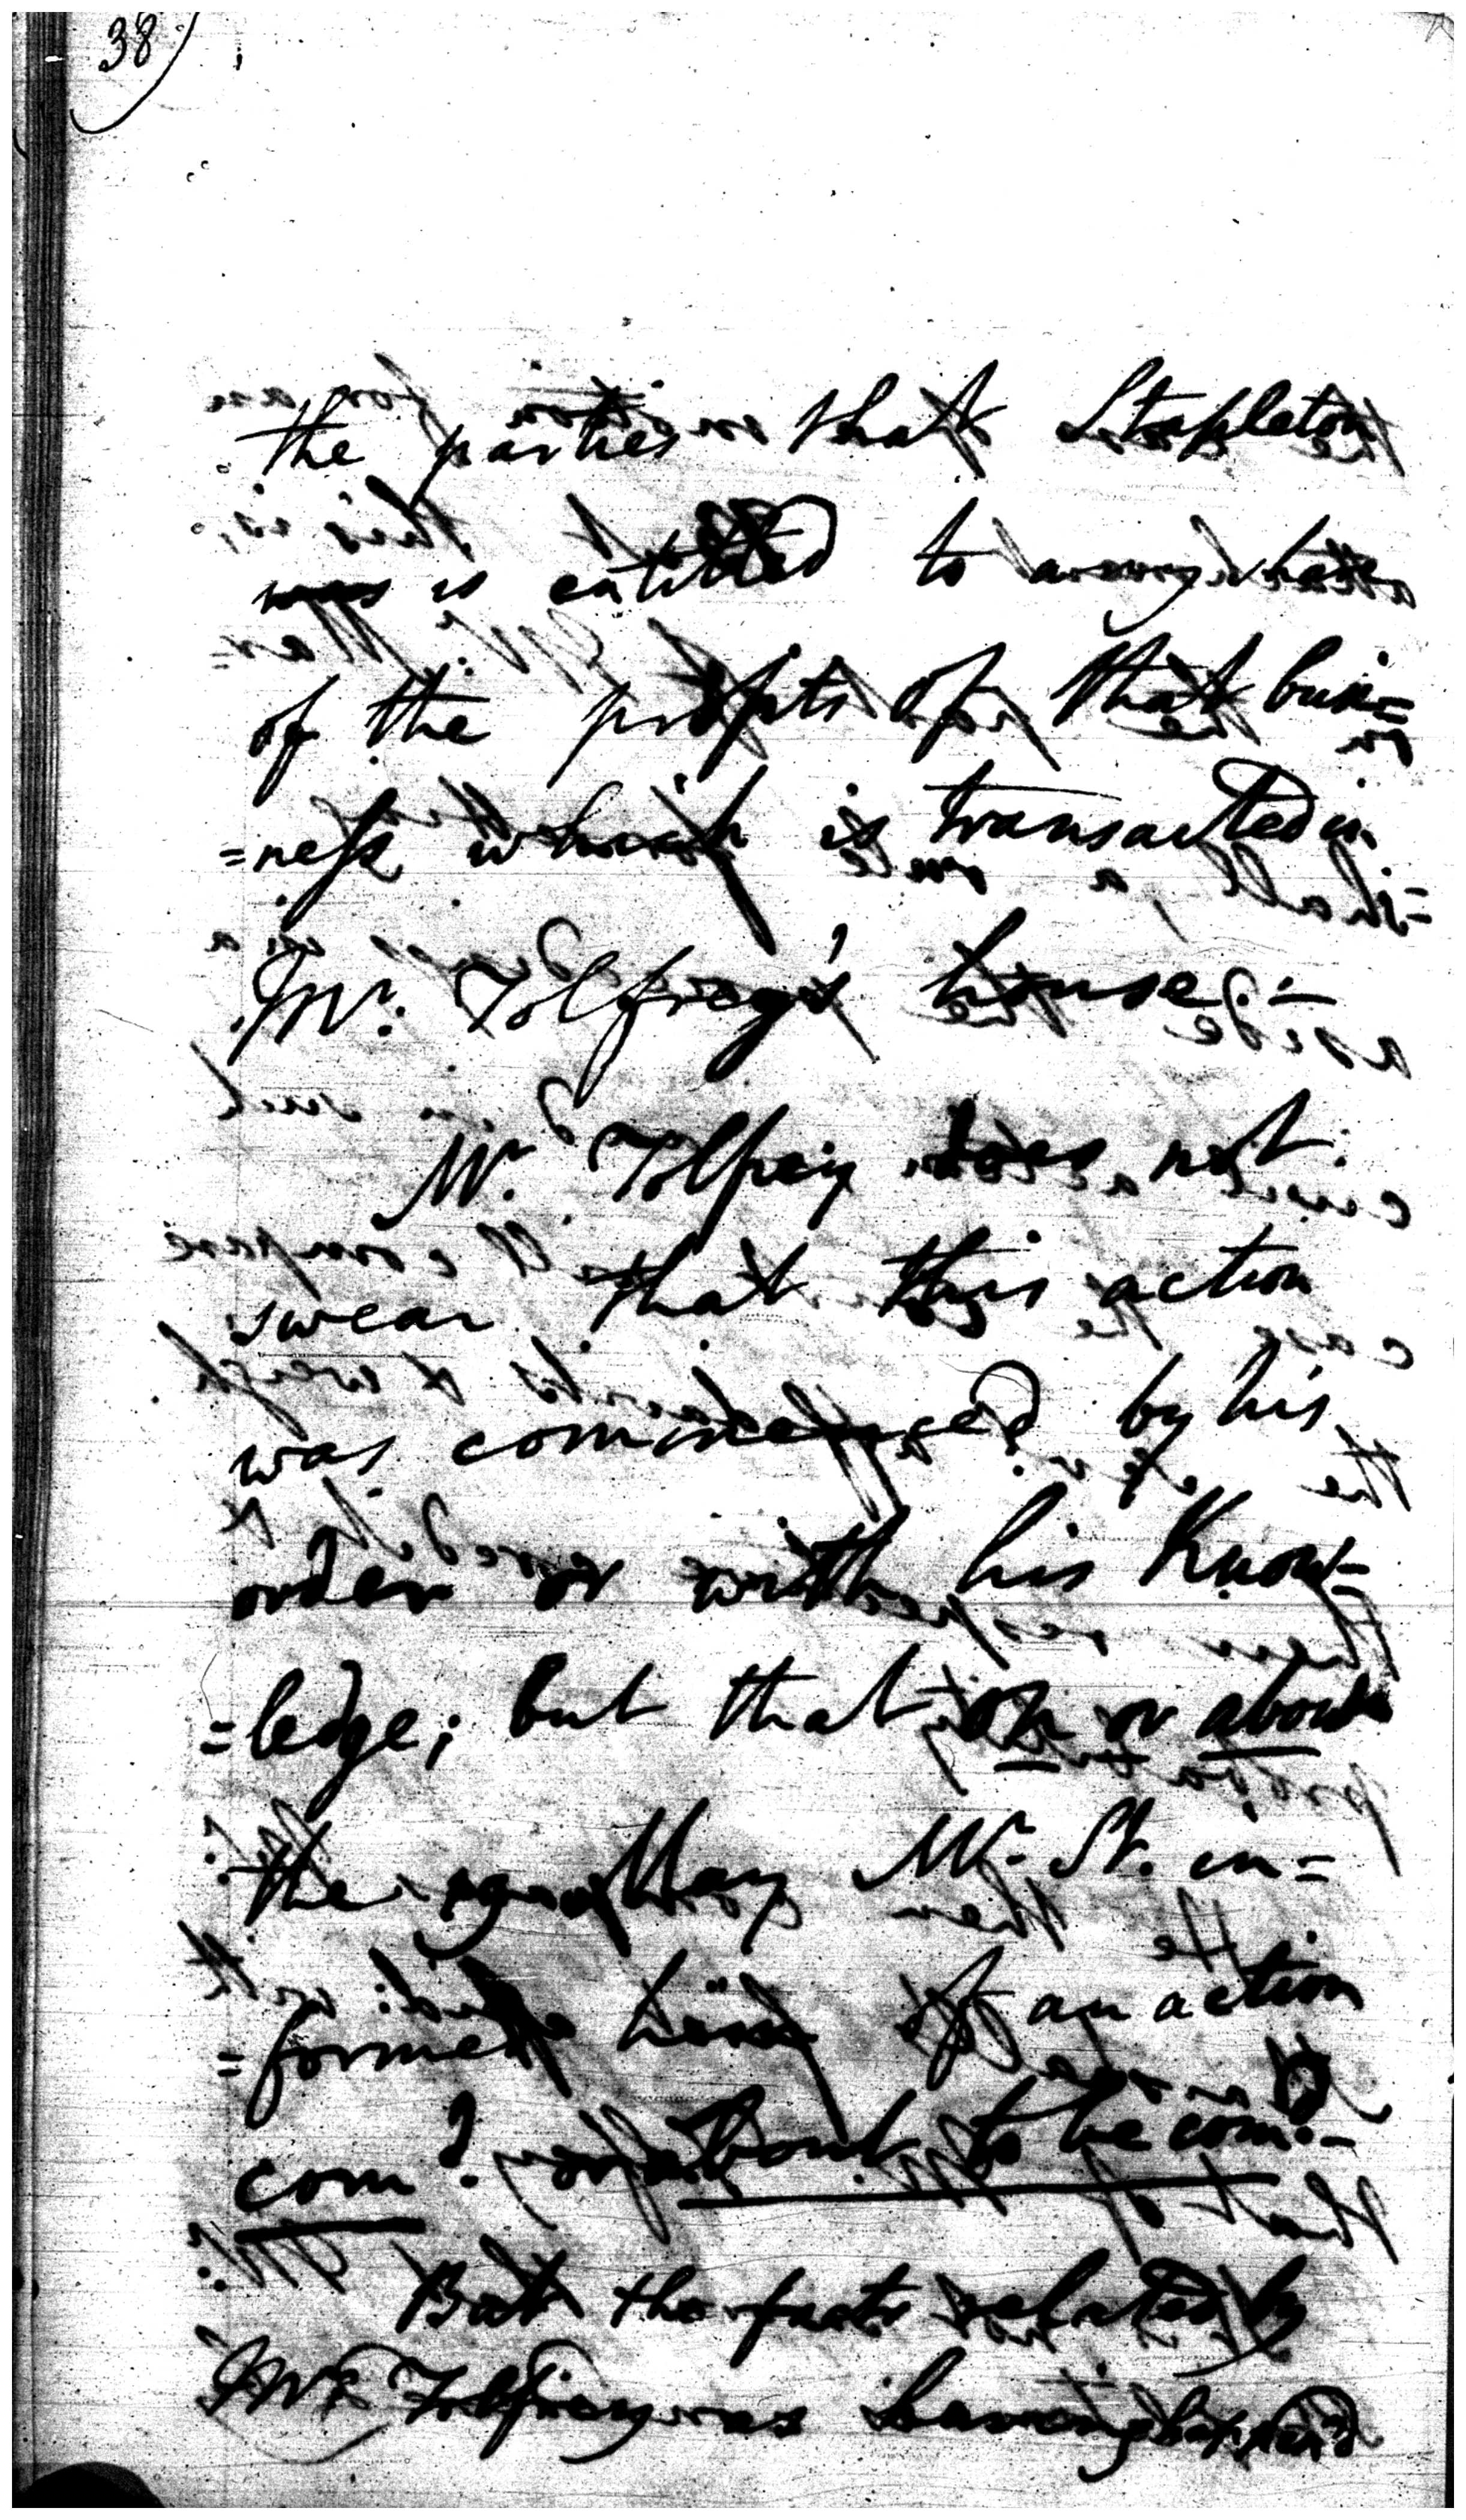 38)
the parties that Stapleton
was is entitled to any share
of the profits of that busi=
=ness which is transacted in
Mr. Tolfrey's house. —
Mr. Tolfrey does not
swear that this action
was commenced by his
order or with his Know=
=ledge; but that on or about
the May Mr. St. in=
=formed him of an action
com.d or about to be com.d —
But the facts related by
Mr. Tolfrey as having happend